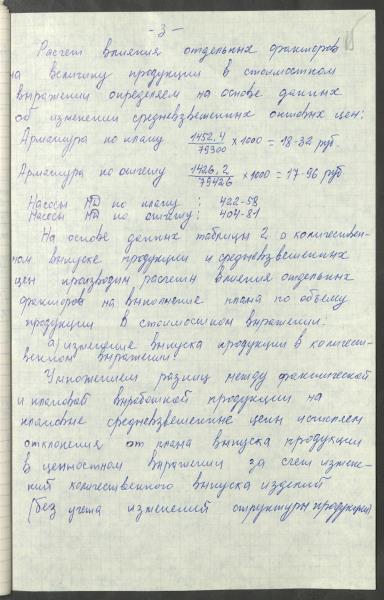 - 3 -
Расчет влияния отдельных факторов
на величину продукции в стоимостном
выражении определяем на основе данных
об изменении средневзвешенных оптовых цен:
Арматура по плану 1452,4/79300 х 1000 = 18-32 руб.
Арматура по отчету 1426,2/79426 х 1000 = 17-96 руб
Насосы НД по плану : 422-58
Насосы НД по отчету: 404-81
На основе данных таблицы 2 о количествен-
ном выпуске продукции и средневзвешенных
цен производим расчеты влияния отдельных
факторов на выполнение плана по объему
продукции в стоимостном выражении:
а) изменение выпуска продукции в количест-
венном выражении
Умножением разниц между фактической
и плановой выработкой продукции на
плановые средневзвешенные цены исчисляем
отклонения от плана выпуска продукции
в ценностном выражении за счет измене-
ний количественного выпуска изделий
(без учета изменений структуры продукции)